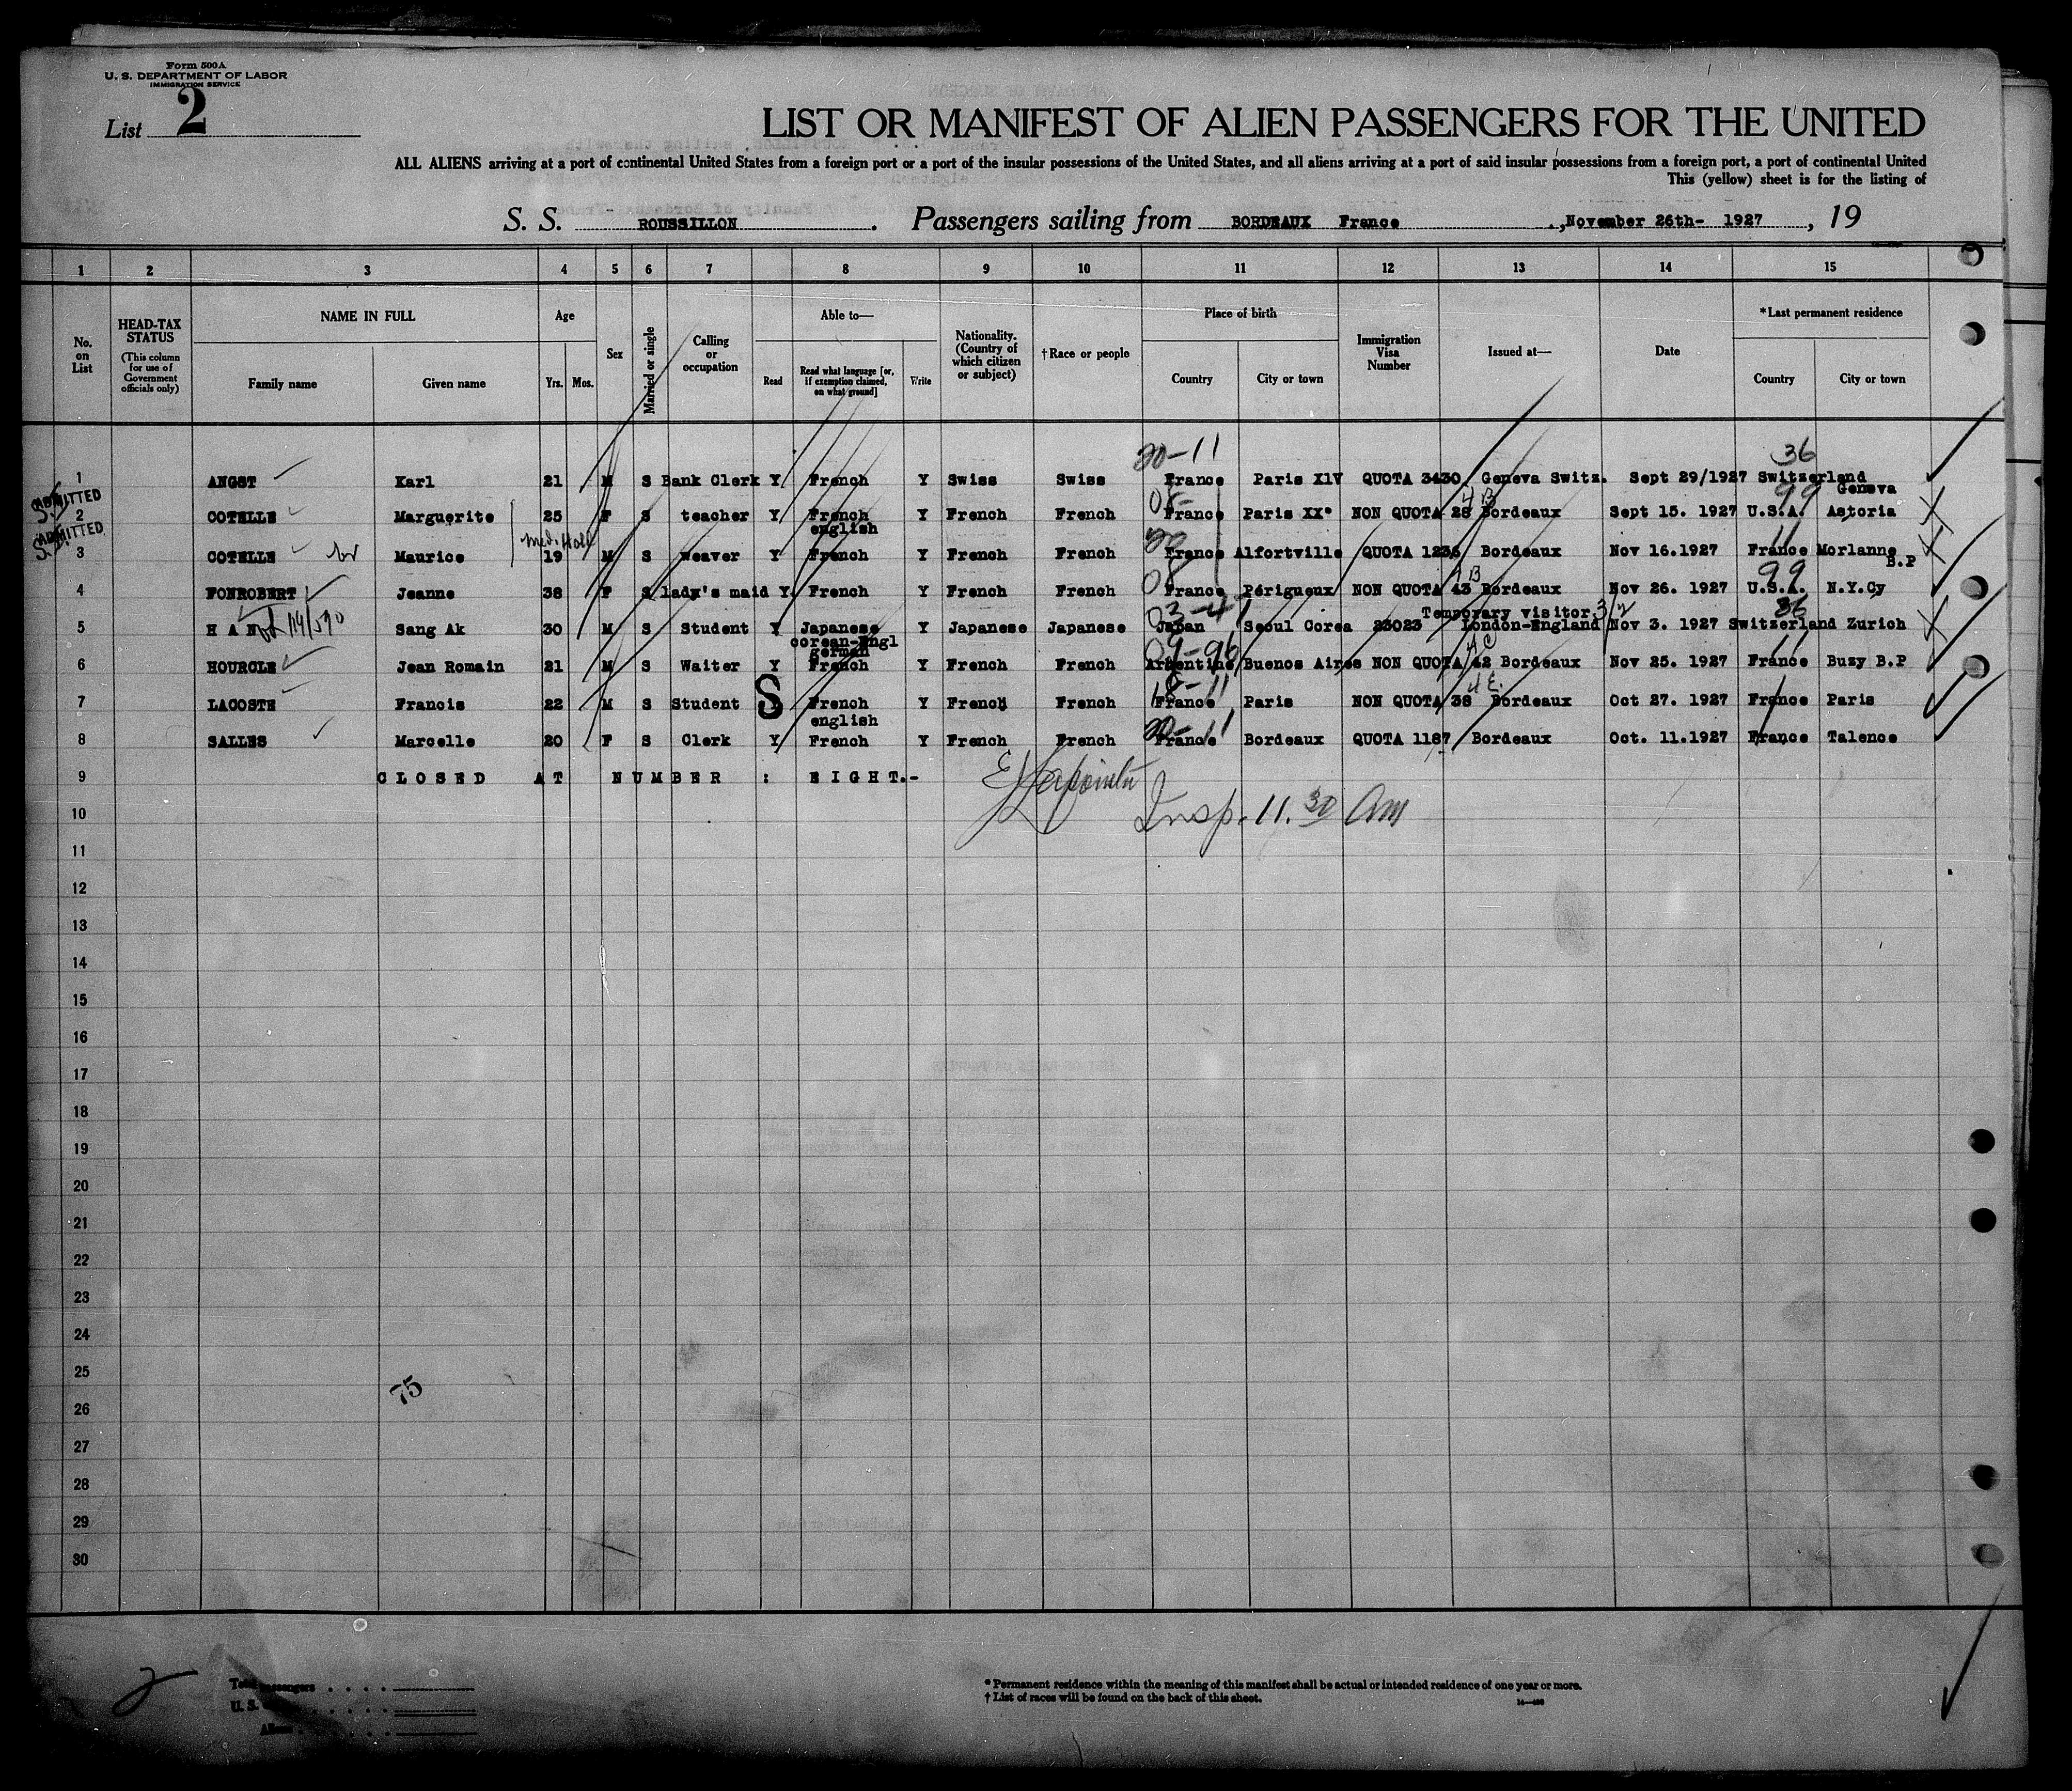 Form 500A
U. S. DEPARTMENT OF LABOR
IMMIGRATION SERVICE
List 2
LIST OR MANIFEST OF ALIEN PASSENGERS FOR THE UNITED
ALL ALIENS arriving at a port of continental United States from a foreign port or a port of the insular possessions of the United States, and all aliens arriving at a port of said insular possessions from a foreign port, a port of continental United
This (yellow) sheet is for the listing of
S. S. ROUSSILLON. Passengers sailing from BORDEAUX France ., November 26th- 1927, 19
1 2 3 4 5 6 7 8 9 10 11 12 13 14 15
No. on List
HEAD-TAX STATUS
(This column for use of Government officials only)
NAME IN FULL
Family name Given name
Age
Yrs. Mos.
Sex
Married or single
Calling or occupation
Able to—
Read
Read what language [or, if exemption claimed, on what ground]
Write
Nationality. (Country of which citizen or subject)
†Race or people
Place of birth
Country City or town
Immigration Visa Number
Issued at—
Date
*Last permanent residence
Country City or town
20-11 36
1 ANGST Karl 21 M S Bank Clerk Y French Y Swiss Swiss France Paris X1V QUOTA 3430 Geneva Switz. Sept 29/1927 Switzerland Geneva
ADMITTED
08- 4B 99
2 COTELLE Marguerite 25 F S teacher Y French english Y French French France Paris XX° NON QUOTA 28 Bordeaux Sept 15. 1927 U.S.A. Astoria
ADMITTED
Med. Hold 20 11
3 COTELLE Maurice 19 M S weaver Y French Y French French France Alfortville QUOTA 1236 Bordeaux Nov 16.1927 France Morlanne B.P
08 4B 99
4 FONROBERT Jeanne 38 F S lady's maid Y French Y French French France Périgueux NON QUOTA 43 Bordeaux Nov 26. 1927 U.S.A. N.Y.Cy
03-47 Temporary visitor 3/2 36
5 HAN Sang Ak 30 M S Student Y Japanese corean-Engl german Y Japanese Japanese Japan Seoul Corea 23023 London-England Nov 3. 1927 Switzerland Zurich
09-96 4C 11
6 HOURCLE Jean Romain 21 M S Waiter Y French Y French French Argentine Buenos Aires NON QUOTA 42 Bordeaux Nov 25. 1927 France Busy B.P
18-11 4E.
7 LACOSTE Francis 22 M S Student S French english Y French French France Paris NON QUOTA 38 Bordeaux Oct 27. 1927 France Paris
20-11
8 SALLES Marcelle 20 F S Clerk Y French Y French French France Bordeaux QUOTA 1187 Bordeaux Oct. 11.1927 France Talence
9 CLOSED AT NUMBER : EIGHT.-
10 Insp. 11.30 Am
11
12
13
14
15
16
17
18
19
20
21
22
23
24
25
75
26
27
28
29
30
2
Total passengers
U. S.
Aliens
* Permanent residence within the meaning of this manifest shall be actual or intended residence of one year or more.
† List of races will be found on the back of this sheet.